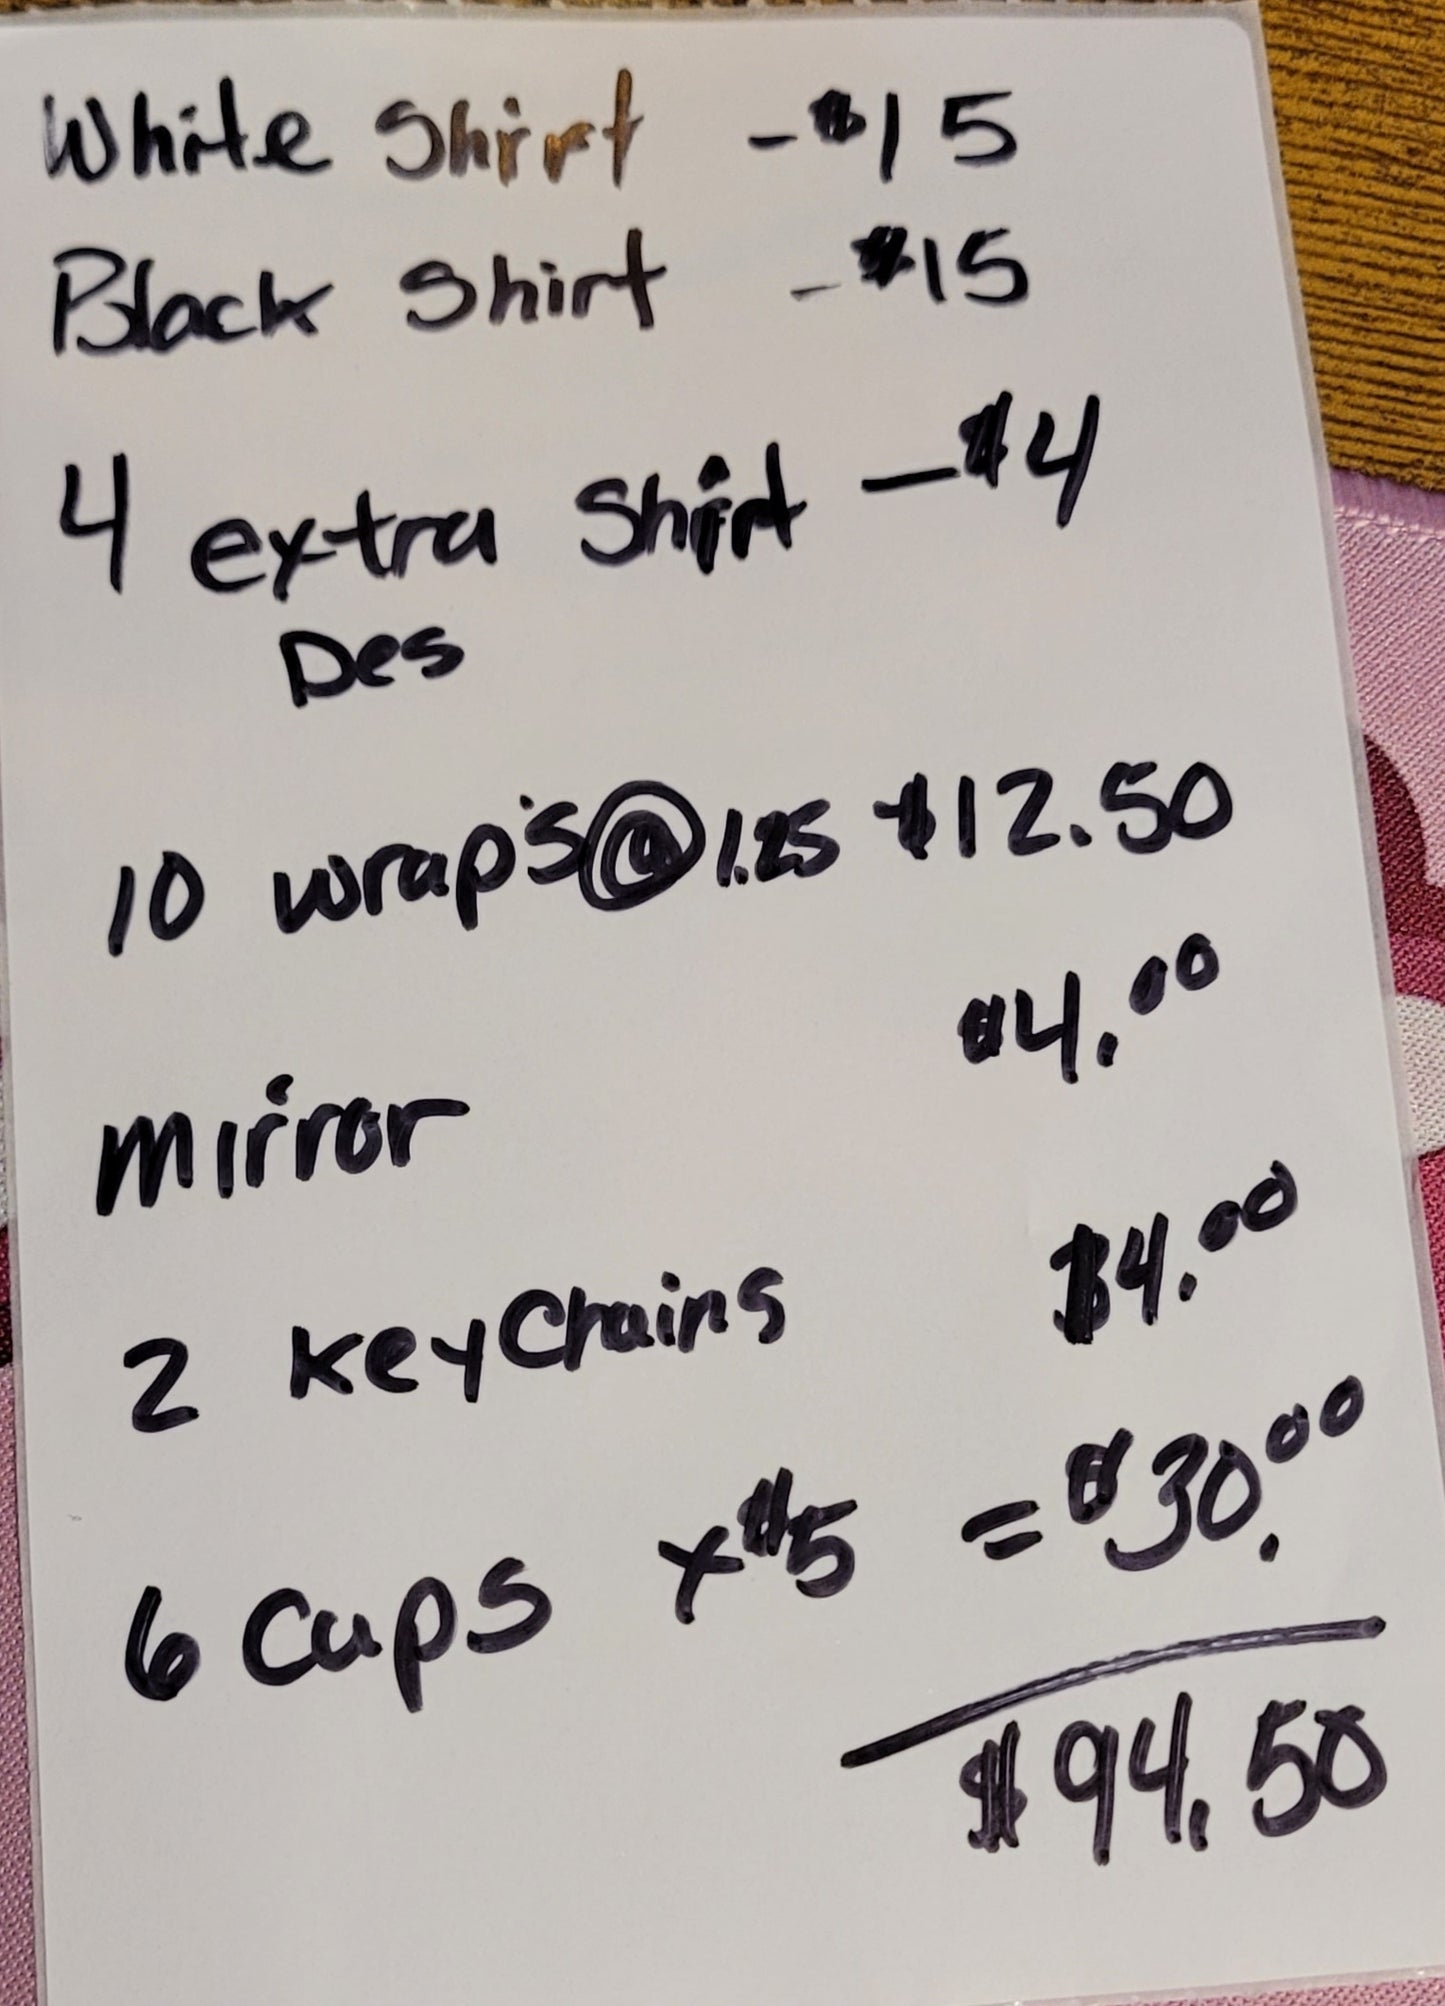 White Shirt - $15
Black Shirt - $15
4 extra Shirt - $4
Des
10 wrap's @ 1.25 $12.50
$4.00
mirror
$4.00
2 KeyChains
6 Cups x $5 = $30.00
$94.50